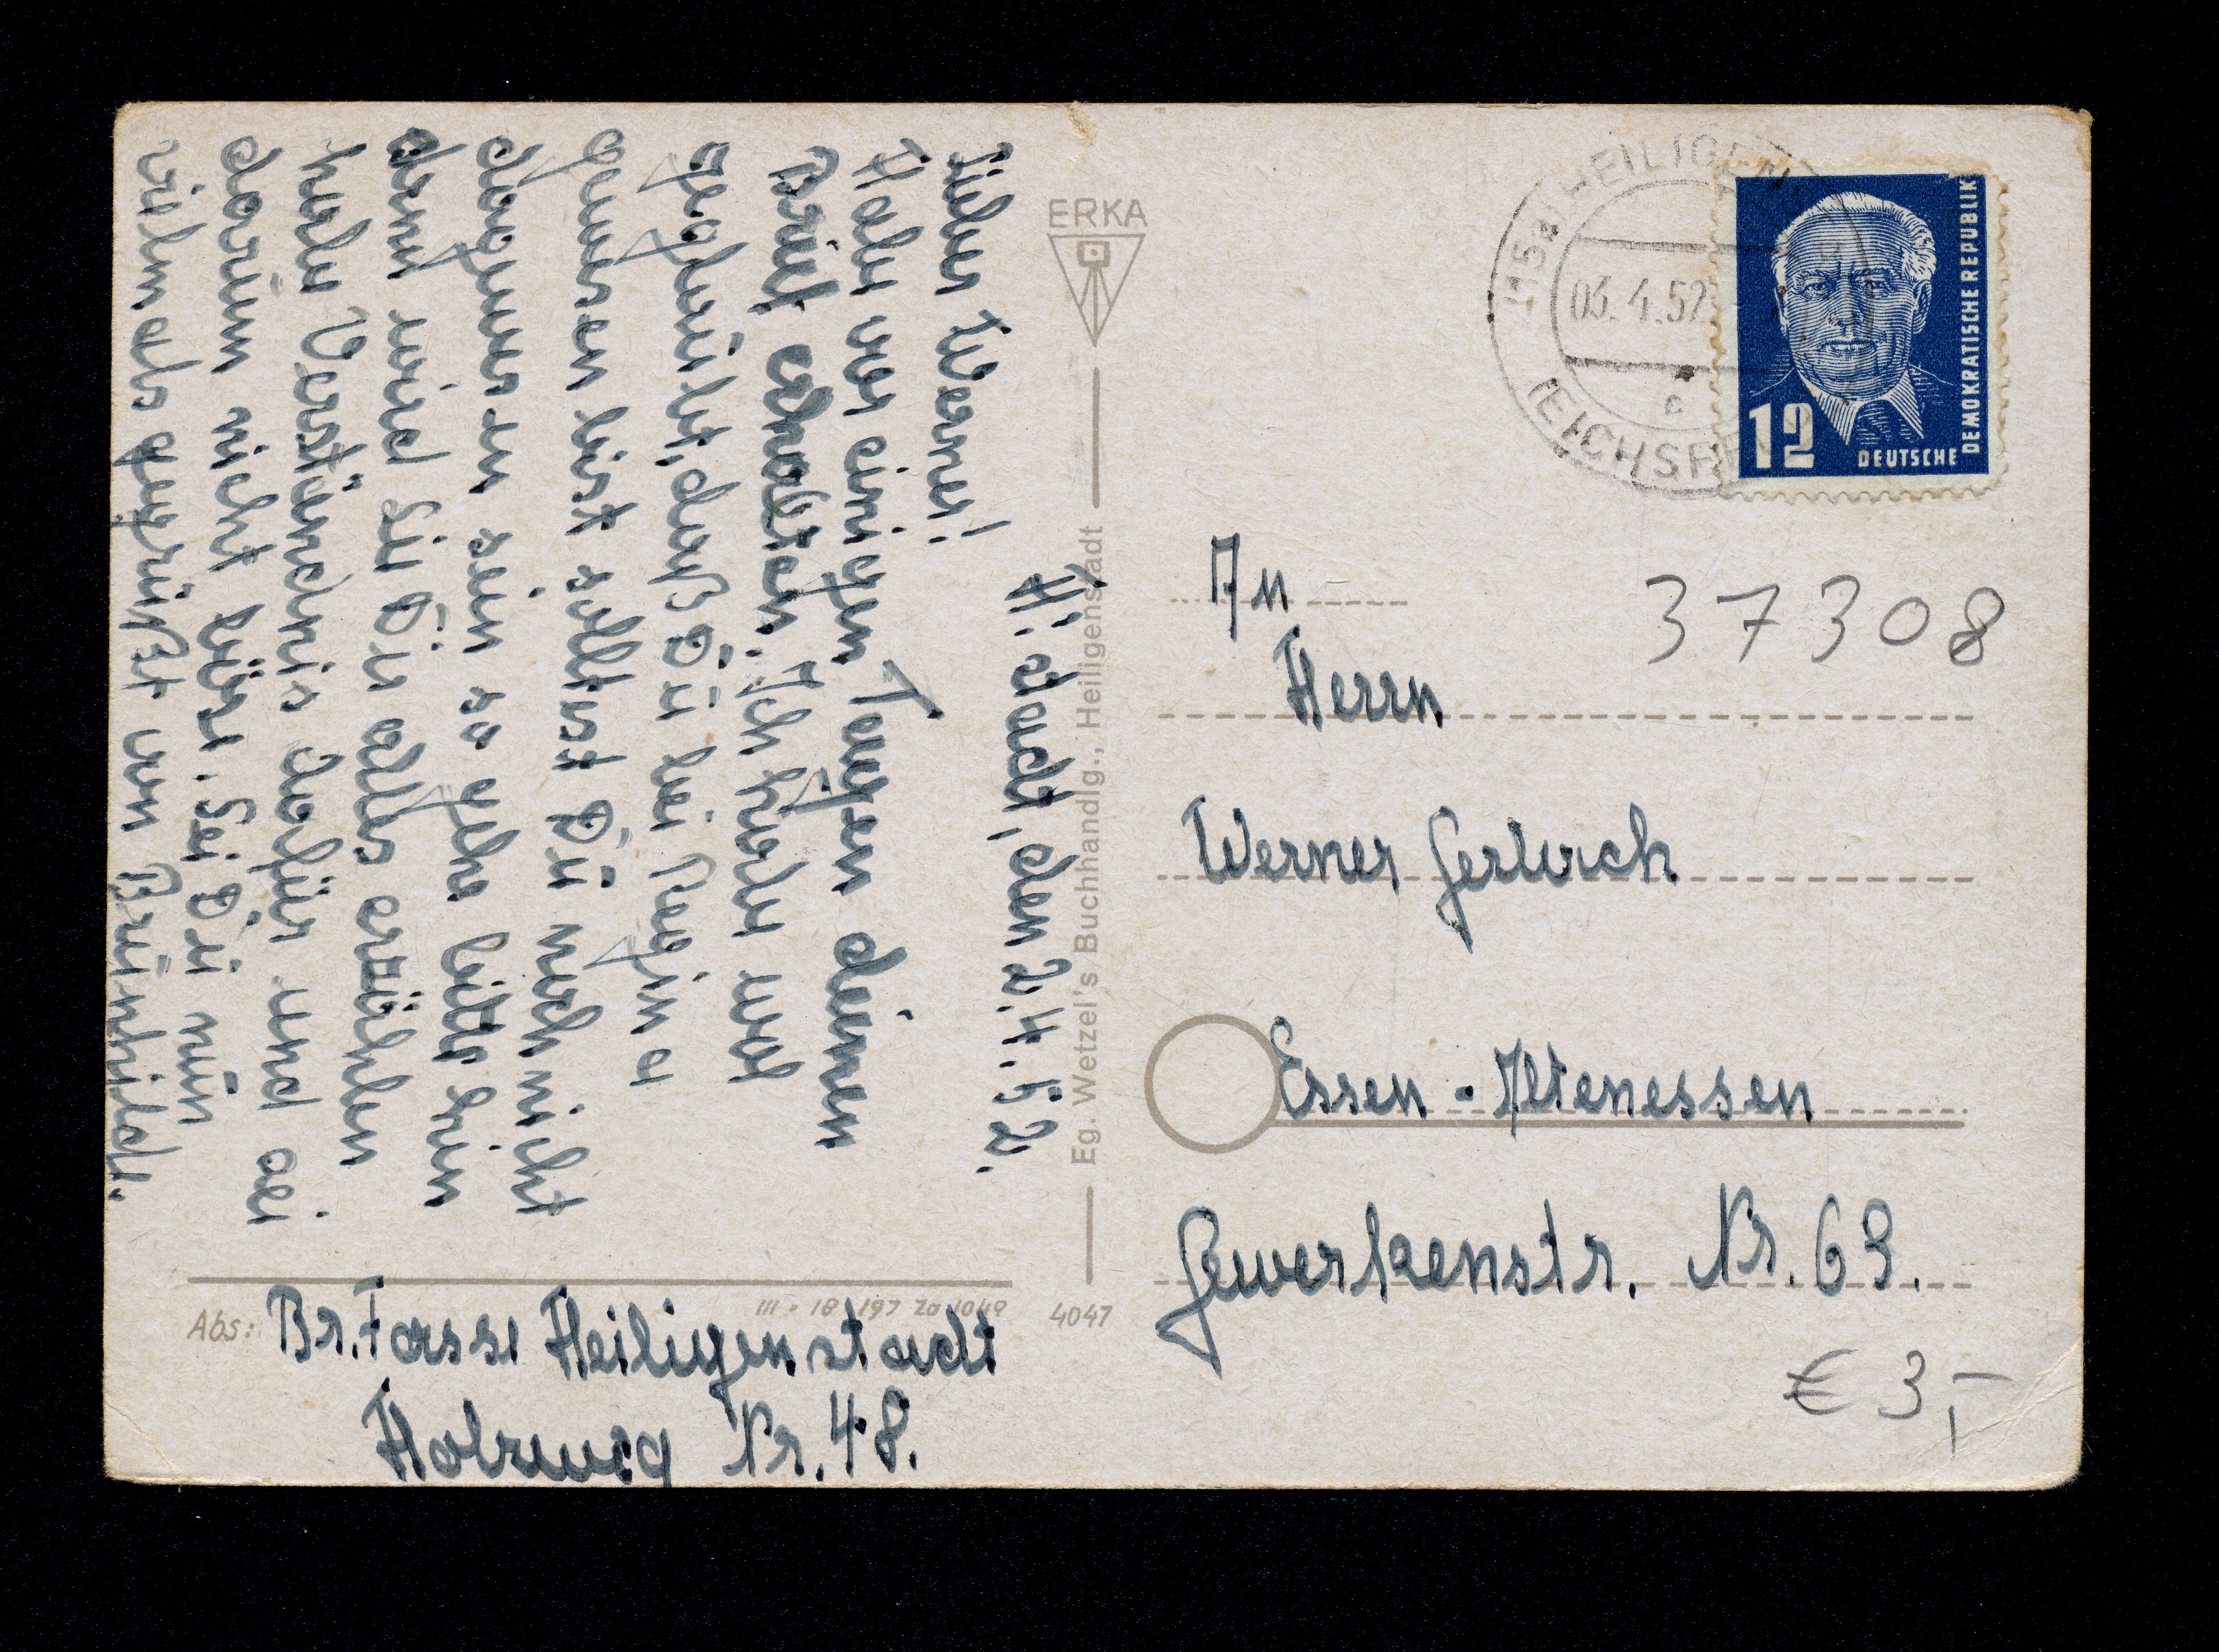 H. stadt, den 2.4.52.
Lieber Werner!
Habe vor einigen Tagen deinen
Brief erhalten. Ich habe erst
geglaubt, daß Du bei Regina
gewesen bist solltest Du noch nicht
dagewesen sein so gehe bitte hin
denn wird sie Dir alles erzählen
habe Verständnis dafür und sei
darum nicht böse. Sei Du nun
vielmals gegrüßt von Brünhild.
Abs: Br. Fasse Heiligenstadt
Holzweg Nr. 48.
III - 18 197 Za 1049
4047
ERKA
Eg. Wetzel's Buchhandlg., Heiligenstadt
(15a) HEILIGENSTADT
03.4.52
c
(EICHSFELD)
12
DEUTSCHE
DEMOKRATISCHE REPUBLIK
An
37308
Herrn
Werner Gerlach
Essen - Altenessen
Gewerkenstr. Nr. 69.
€ 3,-